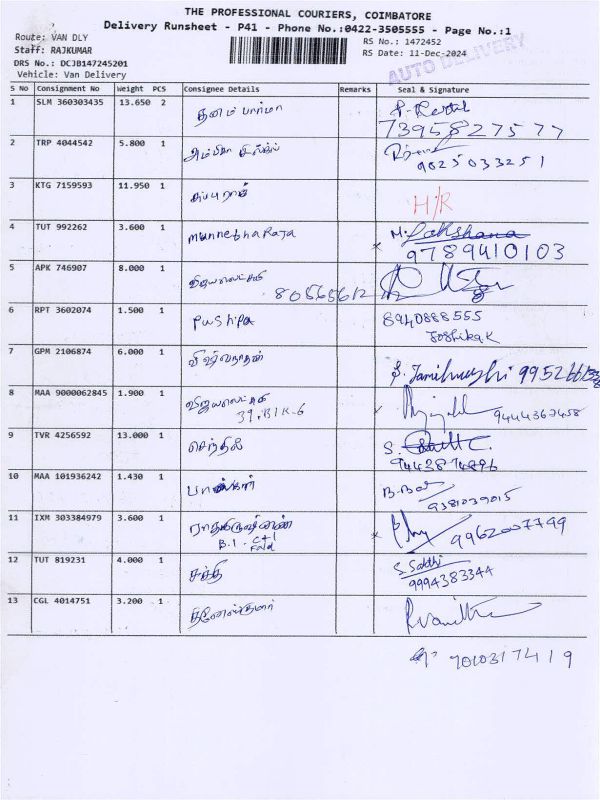 THE PROFESSIONAL COURIERS, COIMBATORE
Delivery Runsheet - P41 - Phone No.:0422-3505555 - Page No.:1
Route: VAN DLY
RS No.: 1472452
Staff: RAJKUMAR
RS Date: 11-Dec-2024
AUTO DELIVERY
DRS No.: DCJB147245201
Vehicle: Van Delivery
S No Consignment No Weight PCS Consignee Details Remarks Seal & Signature
1 SLM 360303435 13.650 2 தனம் பார்மா
7395827577
2 TRP 4044542 5.800 1
9025033251
3 KTG 7159593 11.950 1 H/R
4 TUT 992262 3.600 1 M. Lakshana
9789410103
5 APK 746907 8.000 1 விஜயலட்சுமி
6 RPT 3602074 1.500 1 Pushpa 8940888555
Joshika K
7 GPM 2106874 6.000 1 விஸ்வநாதன்
8 MAA 9000062845 1.900 1 விஜயலட்சுமி
39, B1K-6 9444367458
9 TVR 4256592 13.000 1 செந்தில் S.
10 MAA 101936242 1.430 1 B. 9381039015
11 IXM 303384979 3.600 1 ராதாகிருஷ்ணன் 9962007799
B.1 -
12 TUT 819231 4.000 1 சக்தி S. Sakthi
9994383344
13 CGL 4014751 3.200 1 தினேஷ்குமார் R. Vanitha
7010317419